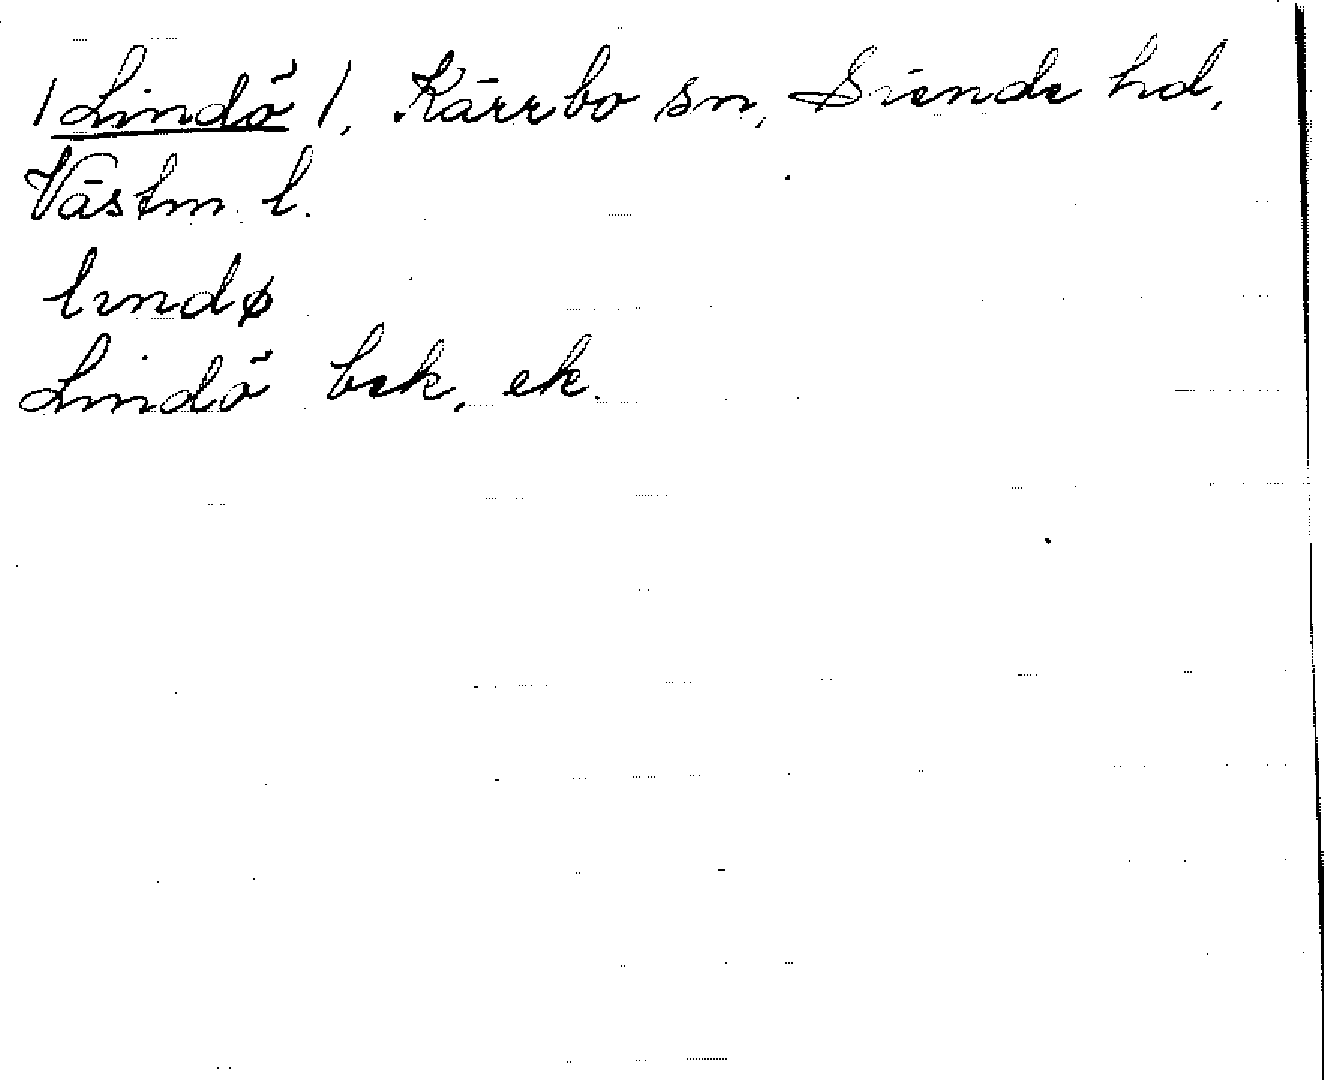 /Lindö/, Kärrbo sn, Siende hd,
Västm. l.
lındø
Lindö bek. ek.